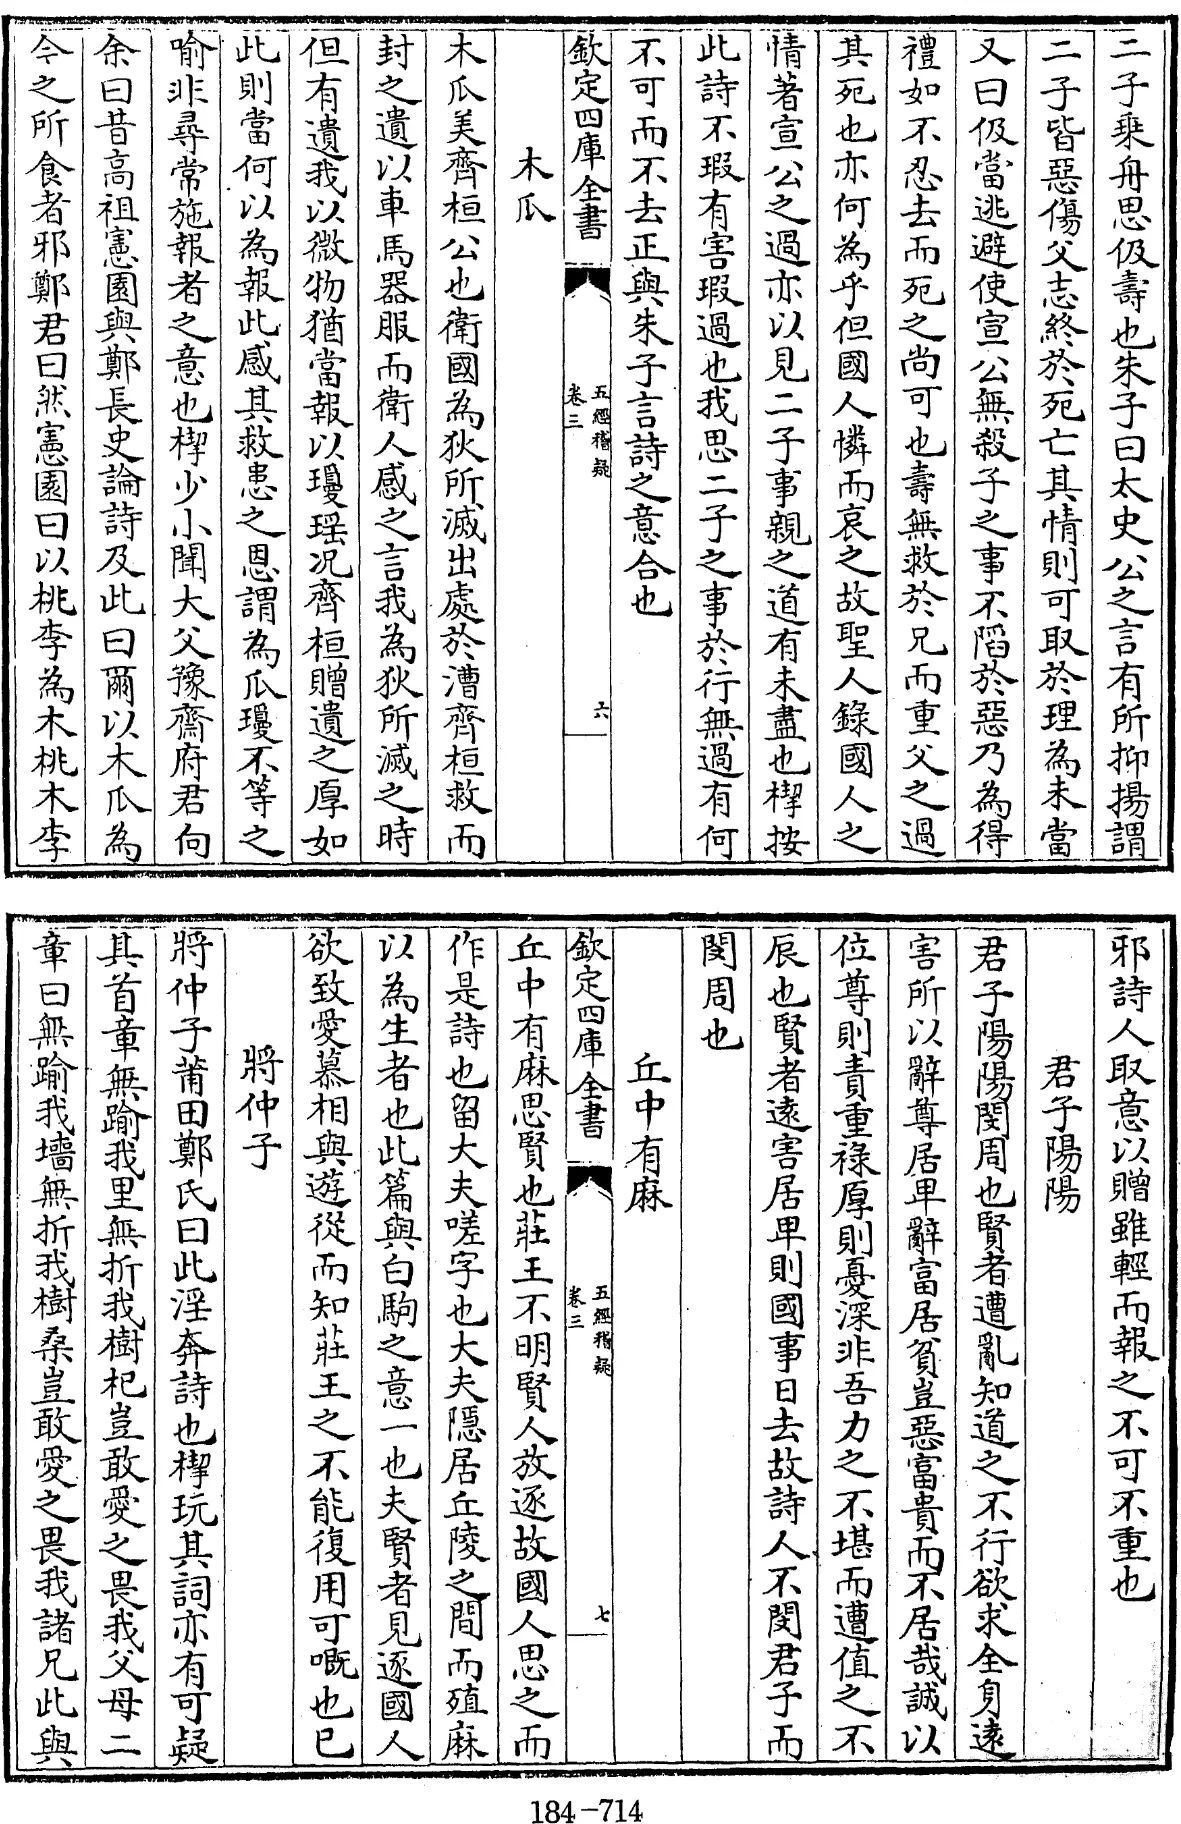 二子乗舟思伋壽也朱子曰太史公之言有所抑揚謂
二子皆惡傷父志終於死亡其情則可取於理為未當
又曰伋當逃避使宣公無殺子之事不陷於惡乃為得
禮如不忍去而死之尚可也壽無救於兄而重父之過
其死也亦何為乎但國人憐而哀之故聖人錄國人之
情著宣公之過亦以見二子事親之道有未盡也㮮按
此詩不瑕有害瑕過也我思二子之事於行無過有何
不可而不去正與朱子言詩之意合也
欽定四庫全書 五經稽疑 卷三 六
木瓜
木瓜美齊桓公也衛國為狄所滅出處於漕齊桓救而
封之遺以車馬器服而衛人感之言我為狄所滅之時
但有遺我以微物猶當報以瓊瑶况齊桓贈遺之厚如
此則當何以為報此感其救患之恩謂為瓜瓊不等之
喻非尋常施報者之意也㮮少小聞大父豫齋府君向
余曰昔高祖憲園與鄭長史論詩及此曰爾以木瓜為
今之所食者邪鄭君曰然憲園曰以桃李為木桃木李
邪詩人取意以贈雖輕而報之不可不重也
君子陽陽
君子陽陽閔周也賢者遭亂知道之不行欲求全身遠
害所以辭尊居卑辭富居貧豈惡富貴而不居哉誠以
位尊則責重祿厚則憂深非吾力之不堪而遭值之不
辰也賢者遠害居卑則國事日去故詩人不閔君子而
閔周也
丘中有麻
欽定四庫全書 五經稽疑 卷三 七
丘中有麻思賢也莊王不明賢人放逐故國人思之而
作是詩也留大夫嗟字也大夫隱居丘陵之間而殖麻
以為生者也此篇與白駒之意一也夫賢者見逐國人
欲致愛慕相與遊從而知莊王之不能復用可嘅也已
將仲子
將仲子莆田鄭氏曰此淫奔詩也㮮玩其詞亦有可疑
其首章無踰我里無折我樹杞豈敢愛之畏我父母二
章曰無踰我墻無折我樹桑豈敢愛之畏我諸兄此與
184-714